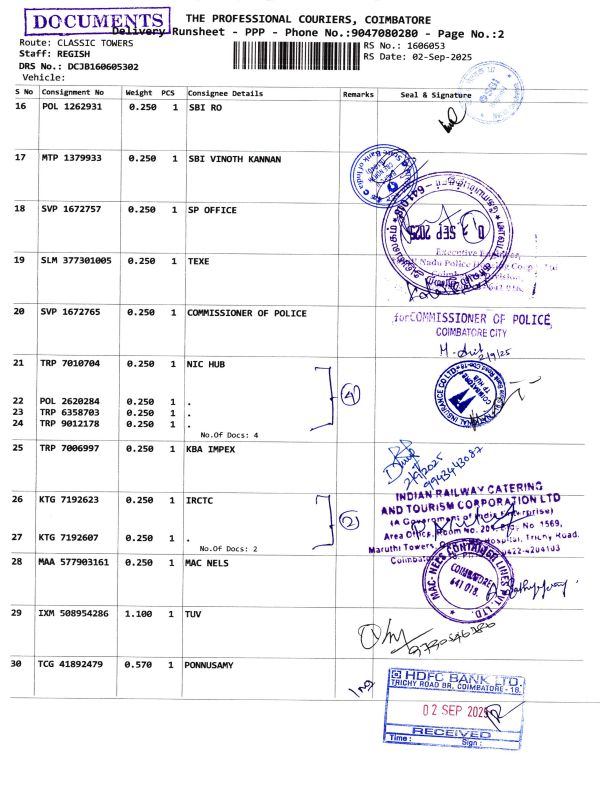 DOCUMENTS
THE PROFESSIONAL COURIERS, COIMBATORE
Delivery Runsheet - PPP - Phone No.:9047080280 - Page No.:2
Route: CLASSIC TOWERS
Staff: REGISH
DRS No.: DCJB160605302
Vehicle:
RS No.: 1606053
RS Date: 02-Sep-2025
S No Consignment No Weight PCS Consignee Details Remarks Seal & Signature
16 POL 1262931 0.250 1 SBI RO
17 MTP 1379933 0.250 1 SBI VINOTH KANNAN
State Bank of India
18 SVP 1672757 0.250 1 SP OFFICE
641 018
SEP 2025
Executive Engineer,
19 SLM 377301005 0.250 1 TEXE
20 SVP 1672765 0.250 1 COMMISSIONER OF POLICE
for COMMISSIONER OF POLICE,
COIMBATORE CITY
2/9/25
21 TRP 7010704 0.250 1 NIC HUB
22 POL 2620284 0.250 1 .
23 TRP 6358703 0.250 1 .
24 TRP 9012178 0.250 1 .
No.Of Docs: 4
4
COIMBATORE
25 TRP 7006997 0.250 1 KBA IMPEX
2/9/2025
9943443087
26 KTG 7192623 0.250 1 IRCTC
27 KTG 7192607 0.250 1 .
No.Of Docs: 2
2
INDIAN RAILWAY CATERING
AND TOURISM CORPORATION LTD
(A Government of India Enterprise)
Area Office, Room No. 204, No. 1569,
Maruthi Towers, Hospital, Trichy Road.
0422-4204103
28 MAA 577903161 0.250 1 MAC NELS
MAC-NELS CONTAINER LINES PVT. LTD.
COIMBATORE
641 018.
29 IXM 508954286 1.100 1 TUV
30 TCG 41892479 0.570 1 PONNUSAMY
HDFC BANK LTD.
TRICHY ROAD BR, COIMBATORE - 18.
02 SEP 2025
RECEIVED
Time : Sign :